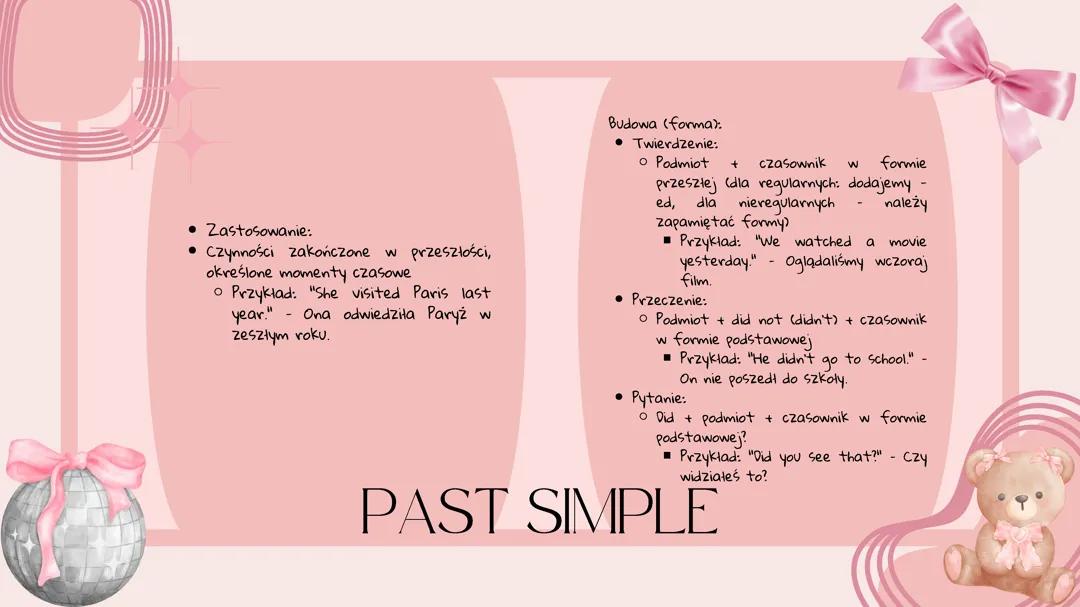 Zastosowanie:
Czynności zakończone w przeszłości,
określone momenty czasowe
Przykład: "She visited Paris last
year." - Ona odwiedziła Paryż w
zeszłym roku.
Budowa (forma):
Twierdzenie:
Podmiot + czasownik w formie
przeszłej (dla regularnych: dodajemy -
ed, dla nieregularnych - należy
zapamiętać formy)
Przykład: "We watched a movie
yesterday." - Oglądaliśmy wczoraj
film.
Przeczenie:
Podmiot + did not (didn't) + czasownik
w formie podstawowej
Przykład: "He didn't go to school." -
On nie poszedł do szkoły.
Pytanie:
Did + podmiot + czasownik w formie
podstawowej?
Przykład: "Did you see that?" - Czy
widziałeś to?
PAST SIMPLE